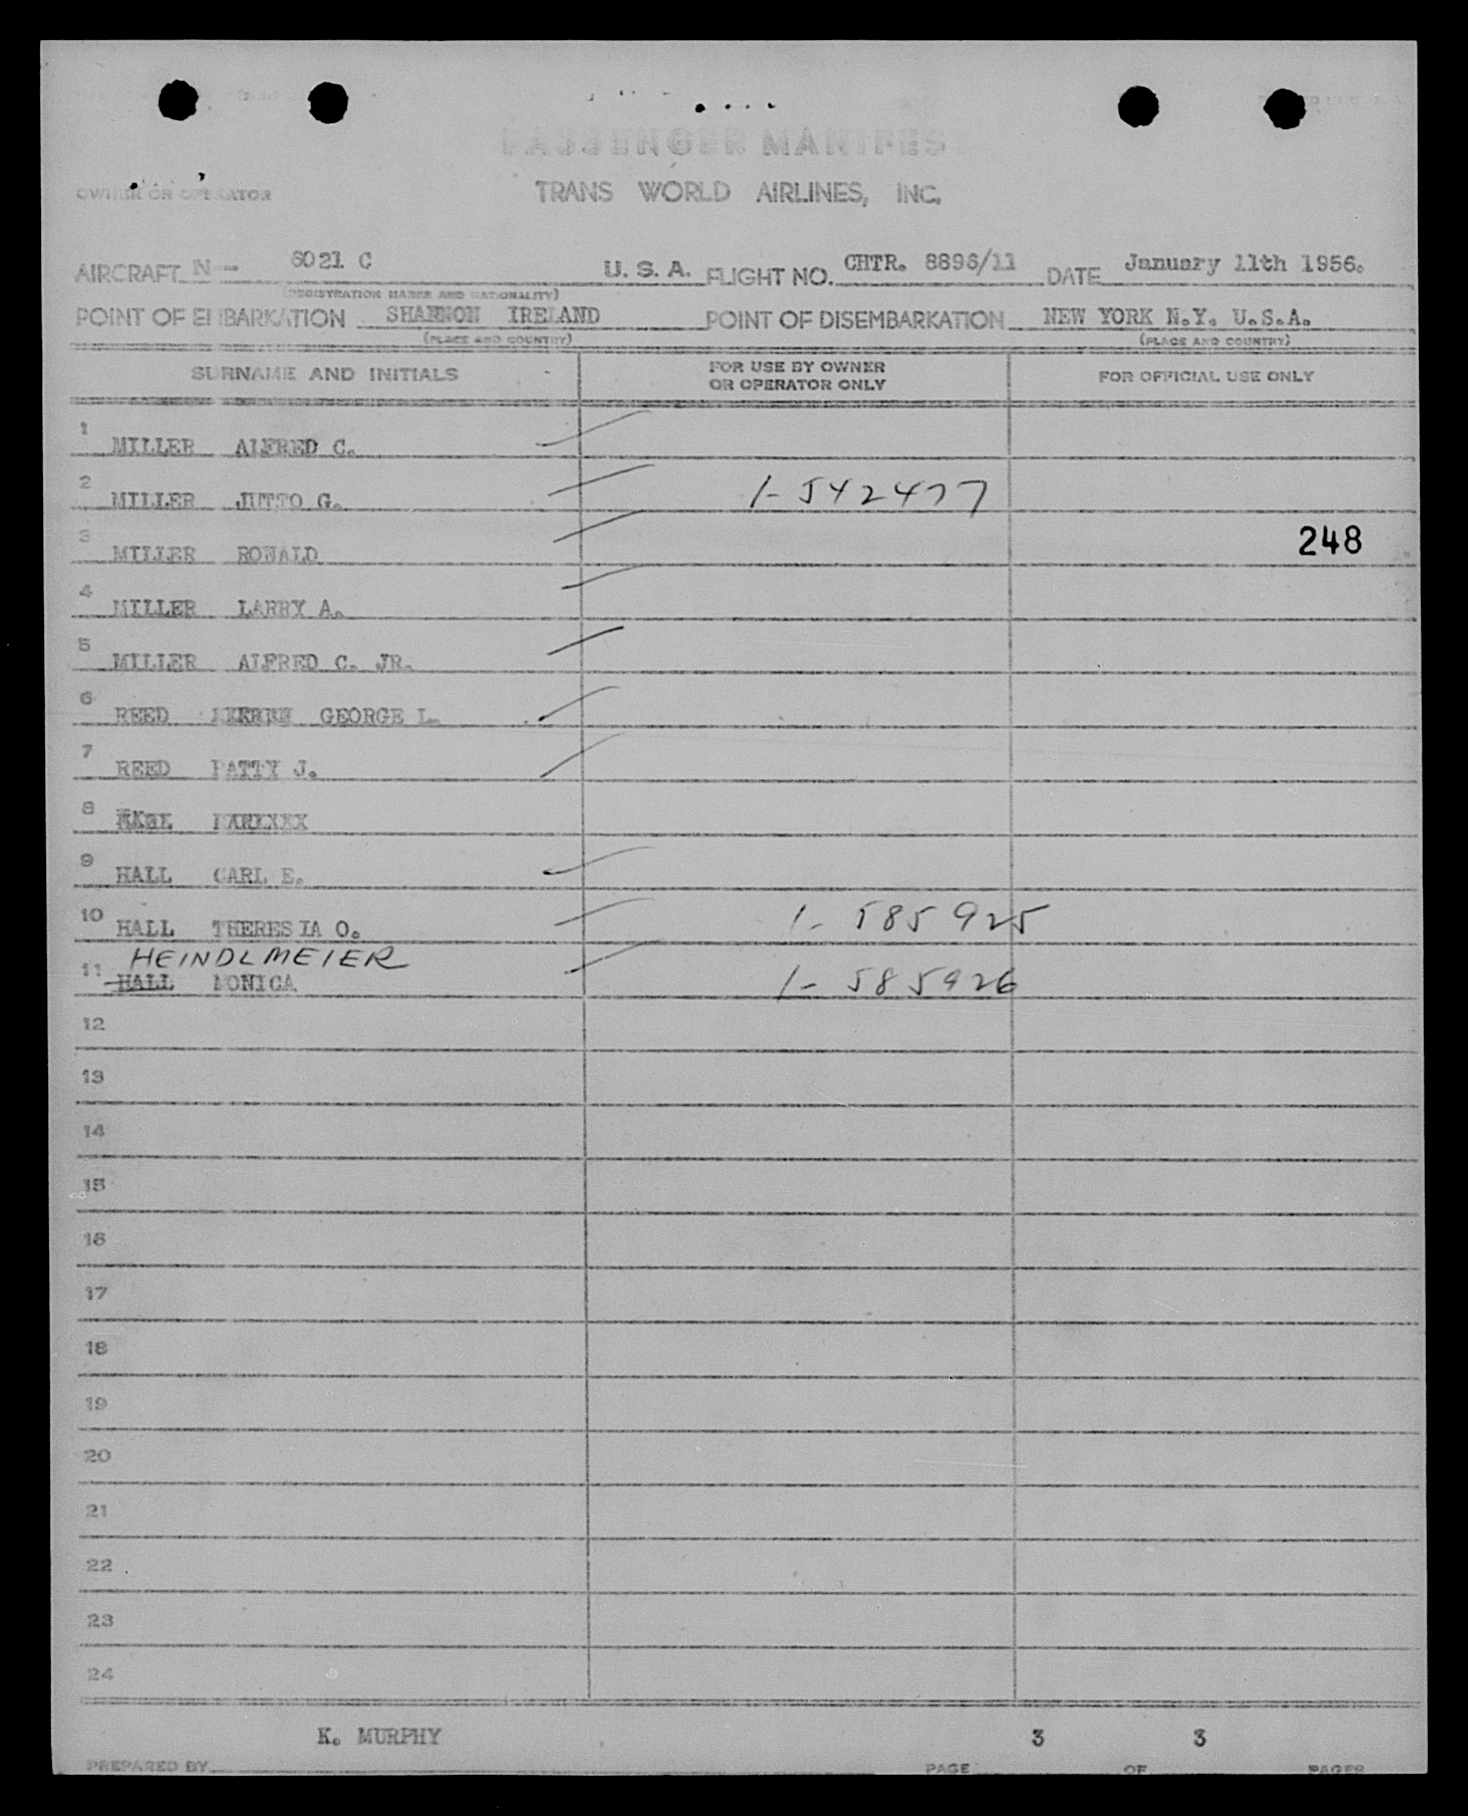 PASSENGER MANIFEST
OWNER OR OPERATOR TRANS WORLD AIRLINES, INC.
AIRCRAFT N - 6021 C U. S. A. FLIGHT NO. CHTR. 8896/11 DATE January 11th 1956.
(REGISTRATION MARKS AND NATIONALITY)
POINT OF EMBARKATION SHANNON IRELAND POINT OF DISEMBARKATION NEW YORK N.Y. U.S.A.
(PLACE AND COUNTRY) (PLACE AND COUNTRY)
SURNAME AND INITIALS FOR USE BY OWNER OR OPERATOR ONLY FOR OFFICIAL USE ONLY
1 MILLER ALFRED C.
2 MILLER JUTTO G. 1-542477
3 MILLER RONALD 248
4 MILLER LARRY A.
5 MILLER ALFRED C. JR.
6 REED GEORGE L.
7 REED PATTY J.
8
9 HALL CARL E.
10 HALL THERESIA O. 1-585925
HEINDLMEIER
11 HALL MONICA 1-585926
12
13
14
15
16
17
18
19
20
21
22
23
24
K. MURPHY 3 3
PREPARED BY PAGE OF PAGES